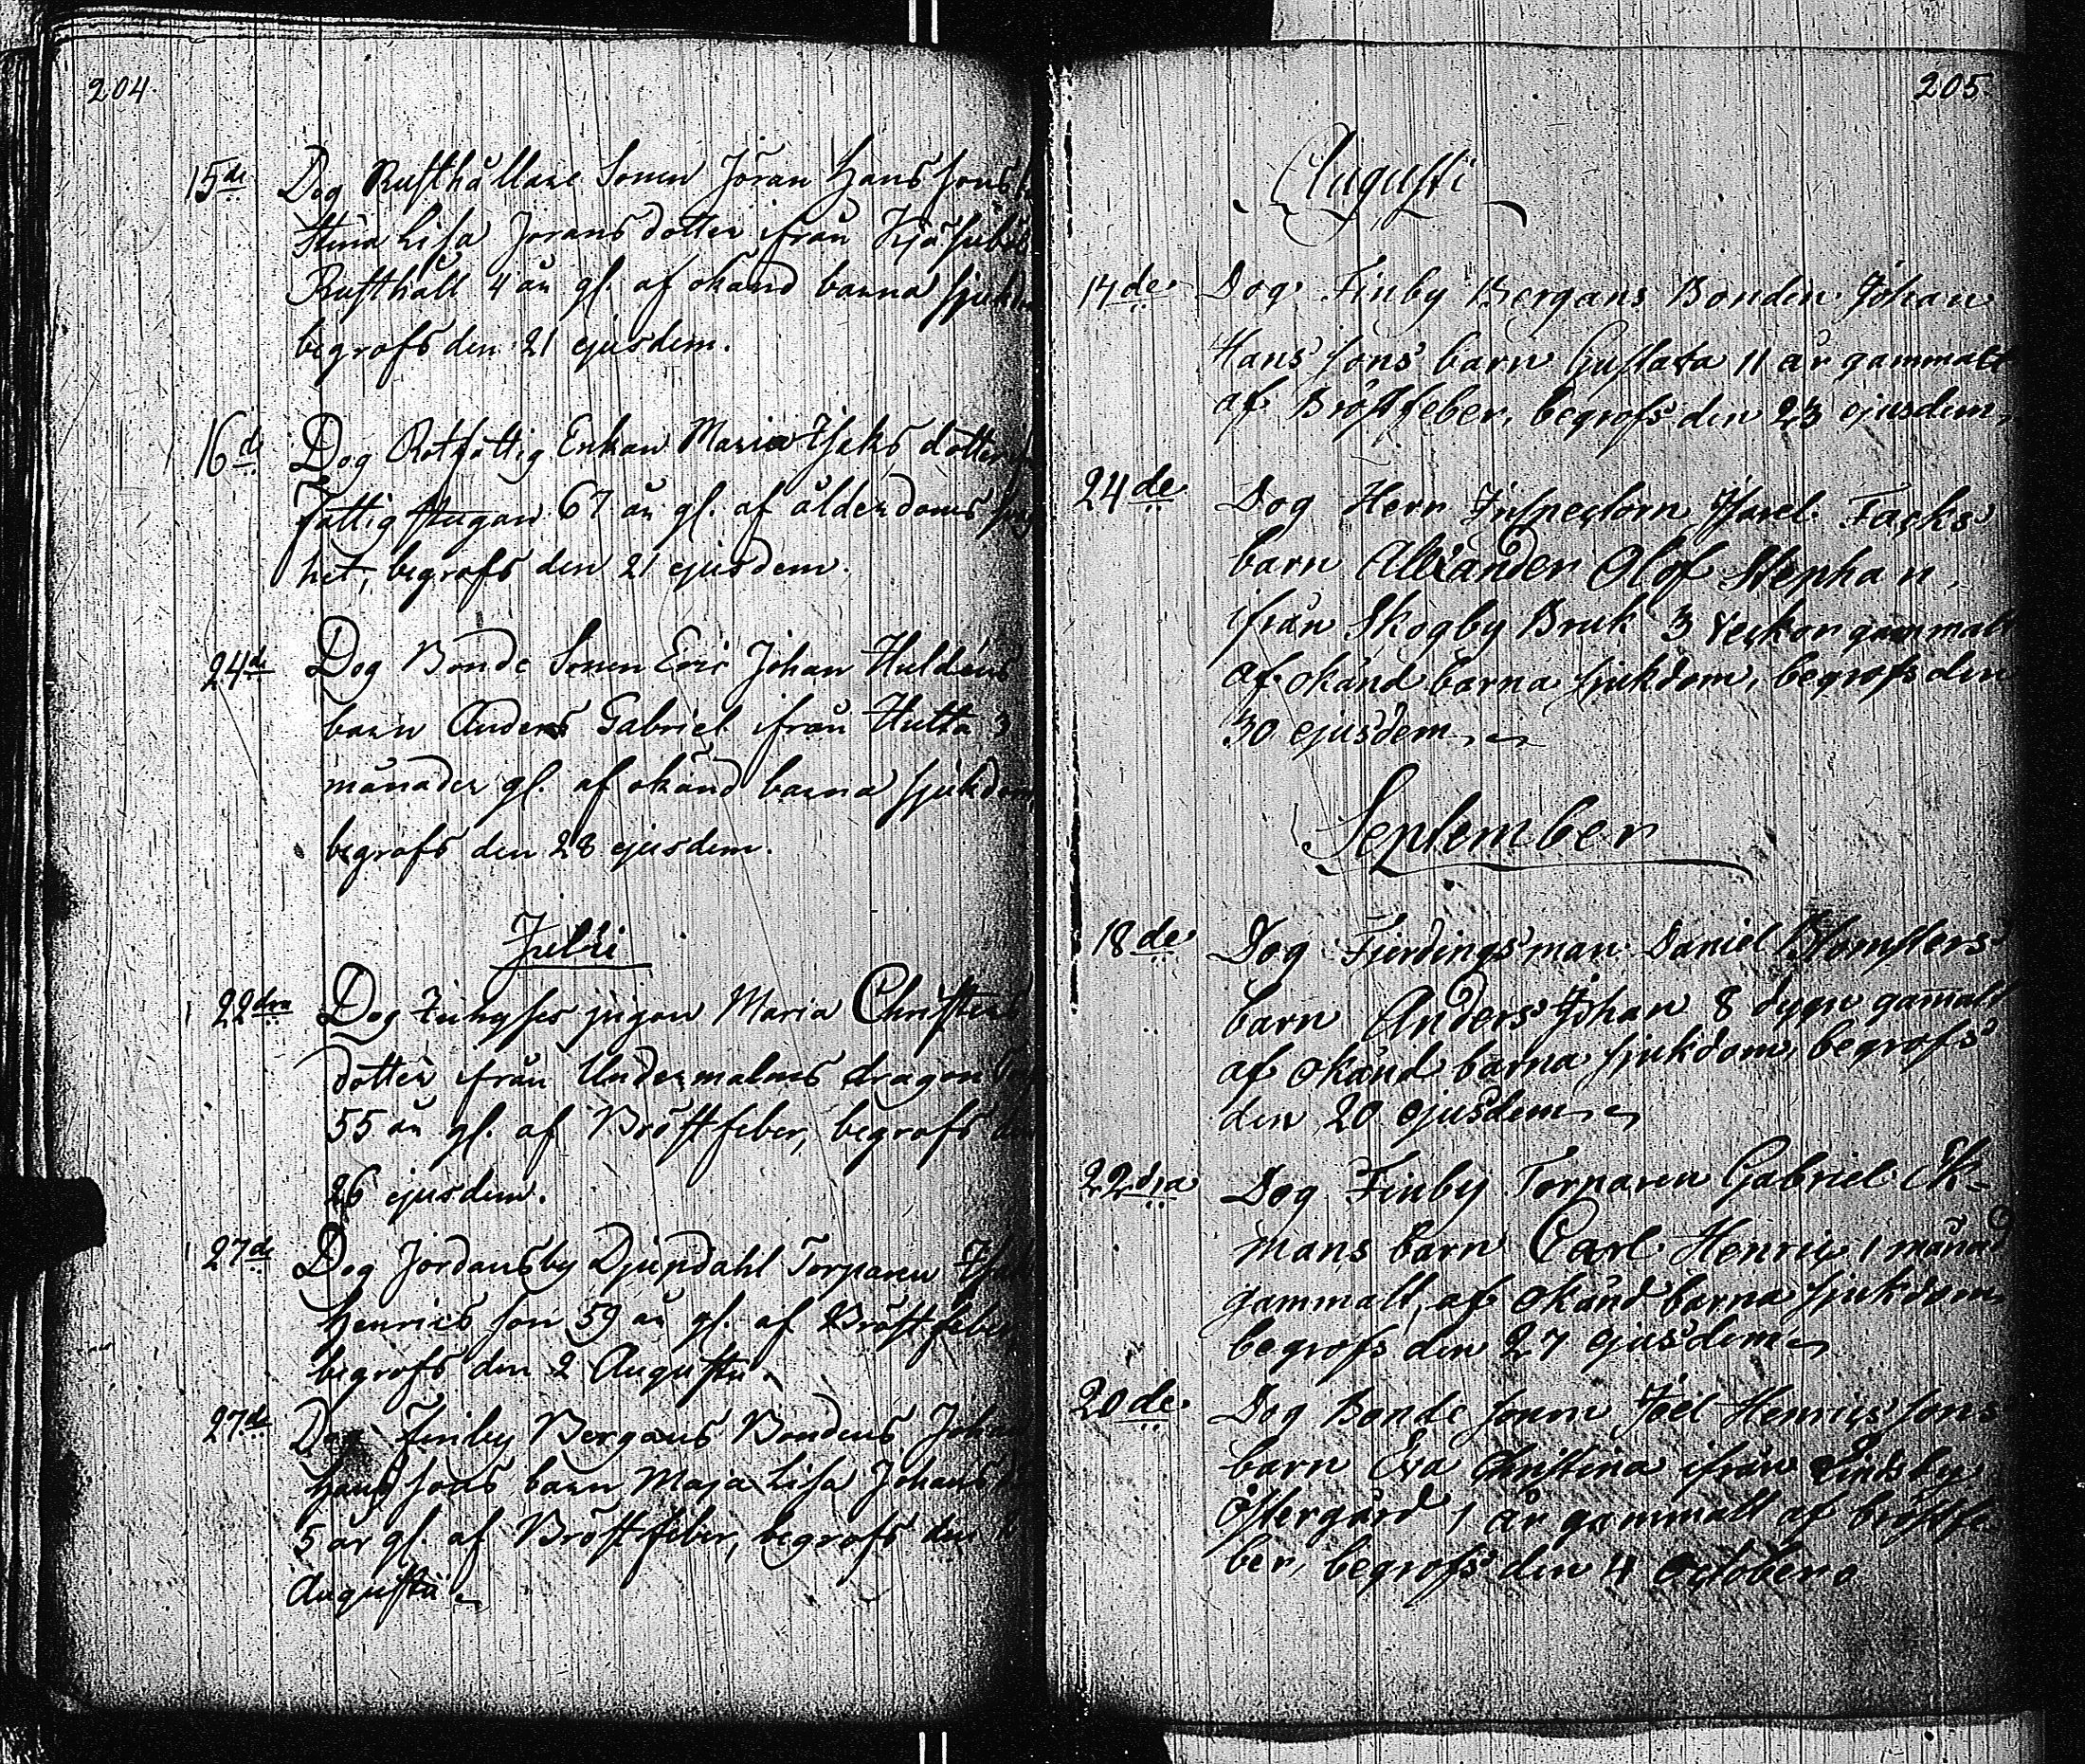 204
15de Dog Rusthållare Sonen Jöran Hans sons
Stina Lisa Jörans dotter ifrån
Rusthåll 4 år gl. af okänd barna sjukdom
begrofs den 21 ejusdem.
16de Dog Rotfattig Enkan Maria Isaks dotter
fattig stugan 67 år gl. af ålderdoms
het, begrofs den 21 ejusdem.
24de Dog Bonde Sonen Eric Johan Huldéns
barn Anders Gabriel ifrån Hulta 3
månader gl. af okänd barna sjukdom
begrofs den 28 ejusdem.
Julii
22dra Dog Inhyses pigan Maria Christers
dotter ifrån Undermalms dragon
55 år gl. af Bröstfeber, begrofs den
26 ejusdem.
27de Dog Jordansby Djupdahl Torparen
Henrics son 59 år gl. af Bröstfeber
begrofs den 2 Augusti.
27de Dog Finby Bergans Bondens Johan
Hans sons barn Maja Lisa Johans
5 år gl. af Bröstfeber, begrofs den
Augusti
205
Augusti
17de Dog Finby Bergans Bonden Johan
Hans sons barn Gustava 11 år gammalt
af Bröstfeber, begrofs den 23 ejusdem
24de Dog Herr Inspectorn Israel Facks
barn Allexander Olof Stephan
ifrån Skogby Bruk 3 Veckor gammalt
af okänd barna sjukdom, begrofs den
30 ejusdem
September
18de Dog Fjerdingsman Daniel Blomsters
barn Anders Johan 8 dygn gamalt
af okänd barna sjukdom, begrofs
den 20 ejusdem
22dra Dog Finby Torparen Gabriel Ek-
mans barn Carl Henric 1 månad
gammalt, af okänd barna sjukdom
begrofs den 27 ejusdem
20de Dog Bonde sonen Joel Henrics sons
barn Eva Christina ifrån Lindsby
Östergård 1 år gammalt af bröstfe
ber, begrofs den 4 October